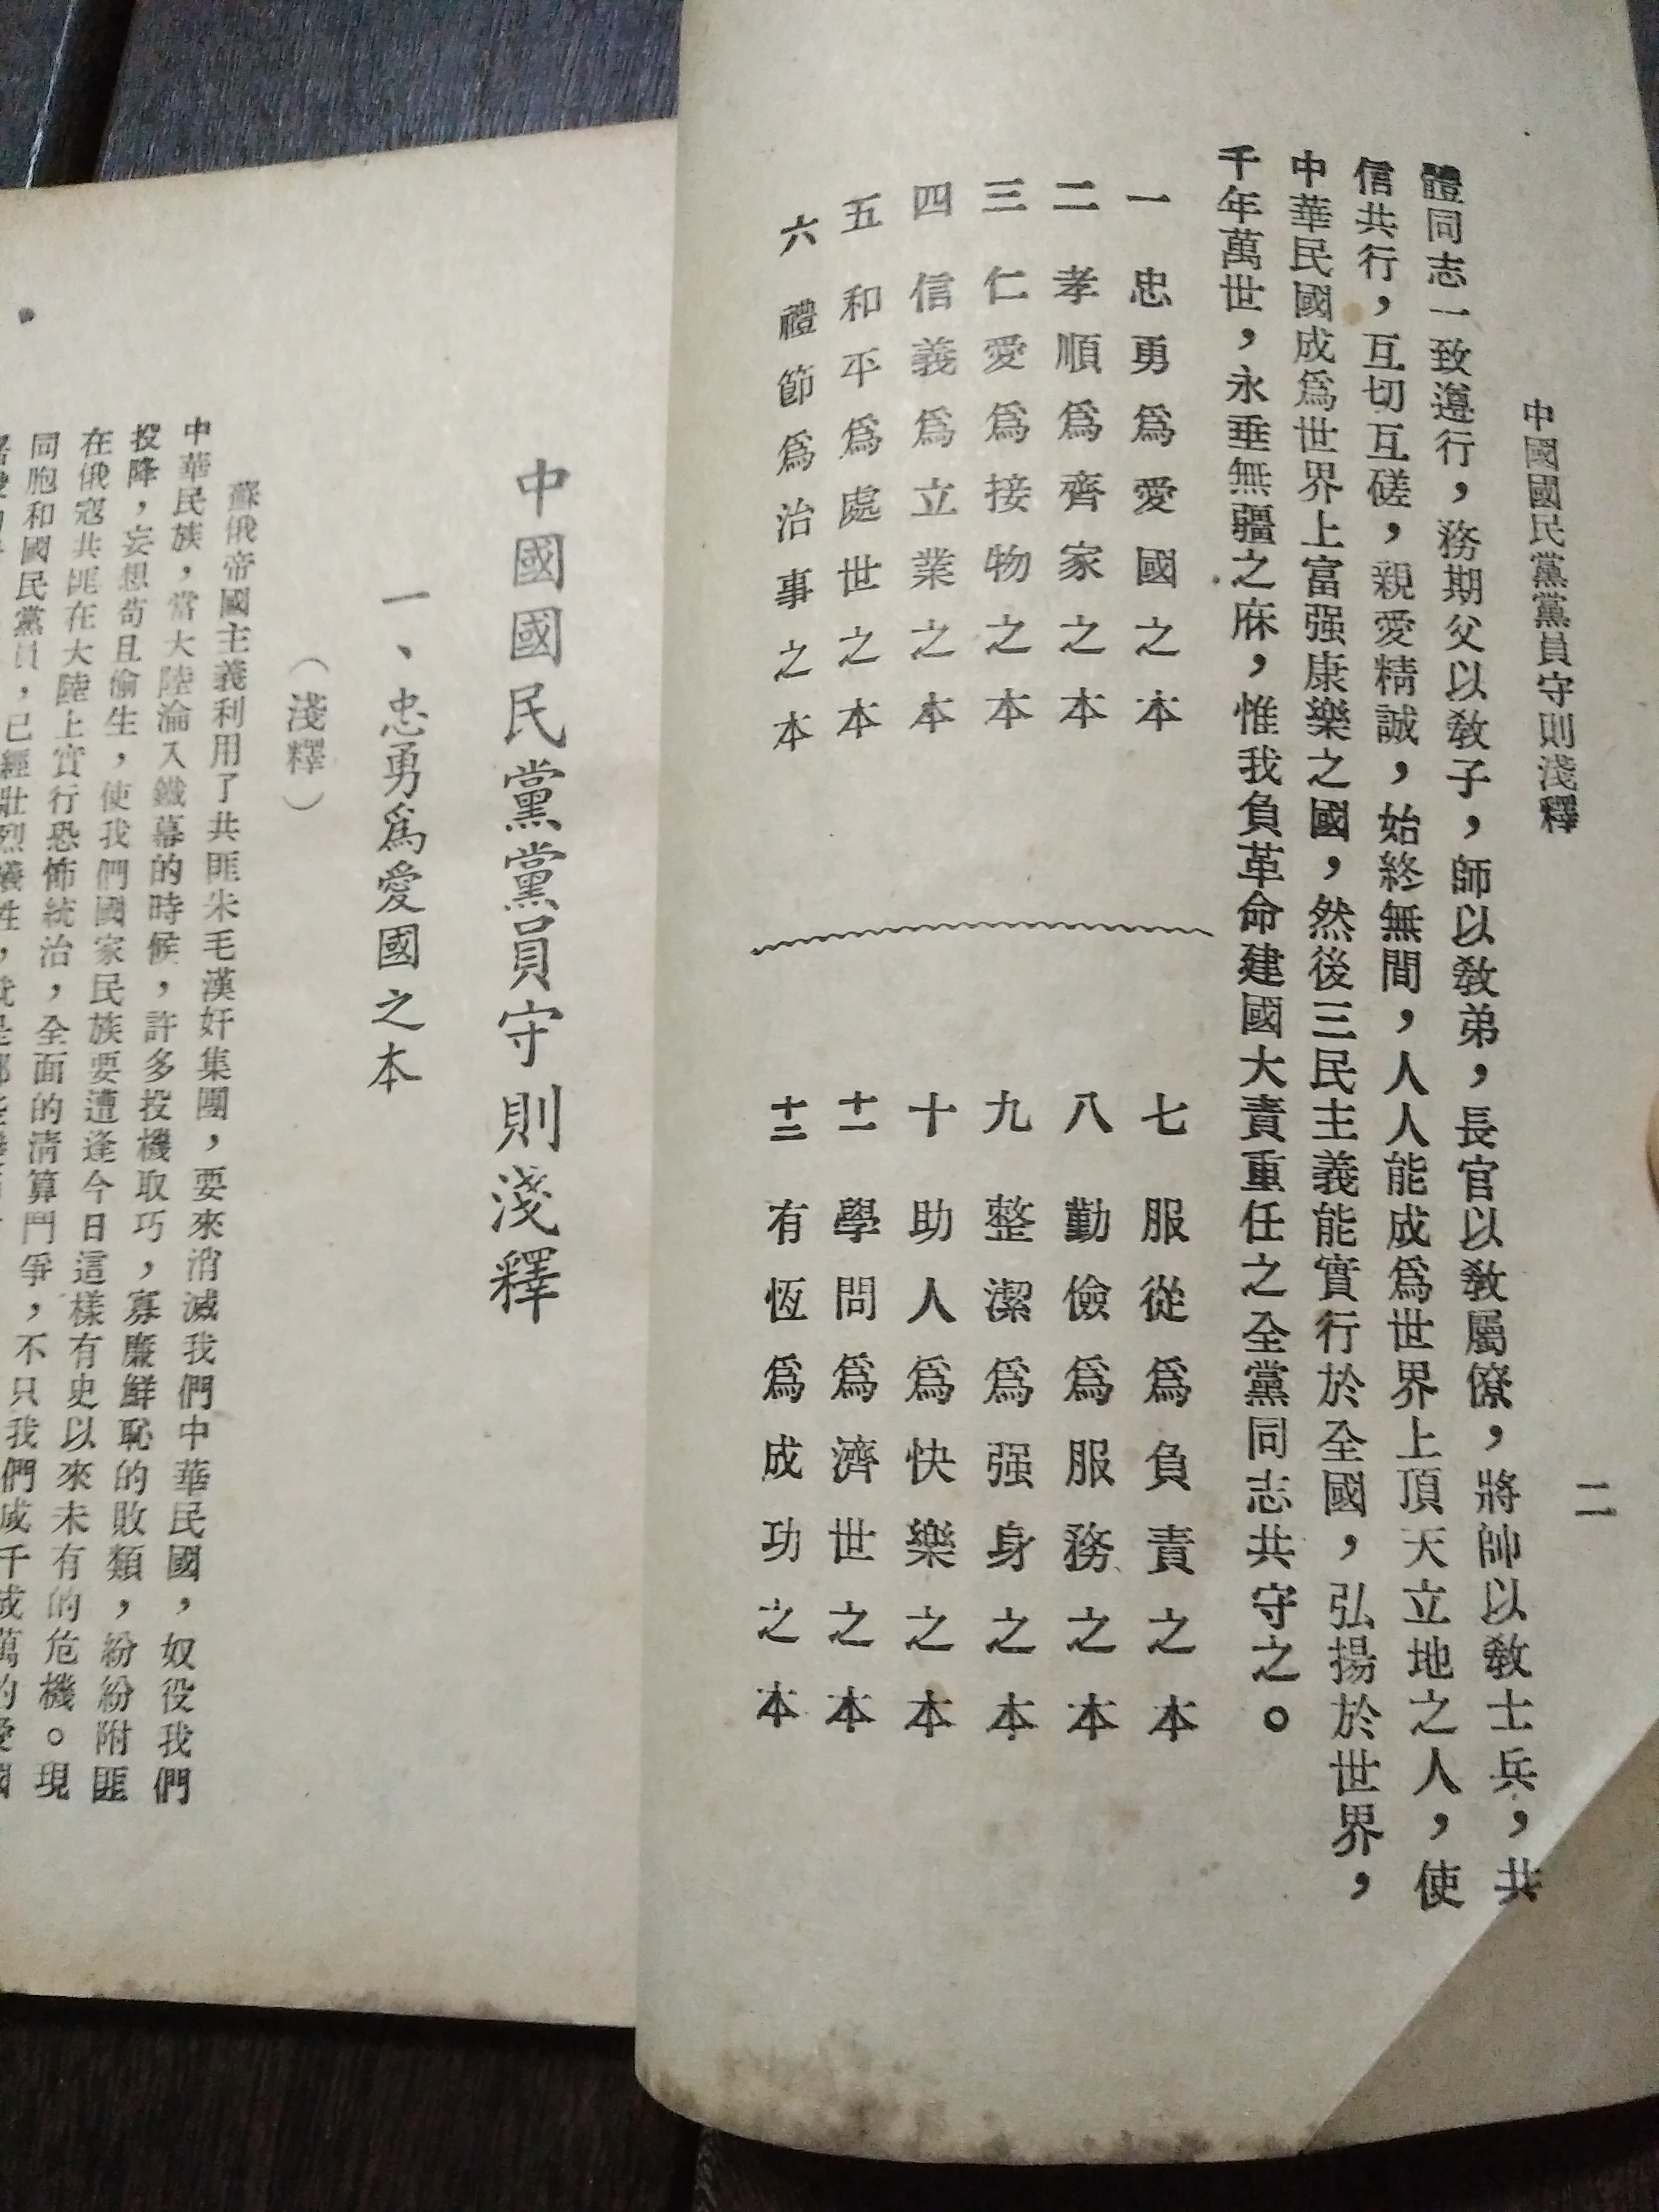 中國國民黨黨員守則淺釋
二
體同志一致遵行，務期父以敎子，師以敎弟，長官以敎屬僚，將帥以敎士兵，共
信共行，互切互磋，親愛精誠，始終無間，人人能成爲世界上頂天立地之人，使
中華民國成爲世界上富强康樂之國，然後三民主義能實行於全國，弘揚於世界，
千年萬世，永垂無疆之庥，惟我負革命建國大責重任之全黨同志共守之。
一 忠勇爲愛國之本
二 孝順爲齊家之本
三 仁愛爲接物之本
四 信義爲立業之本
五 和平爲處世之本
六 禮節爲治事之本
七 服從爲負責之本
八 勤儉爲服務之本
九 整潔爲强身之本
十 助人爲快樂之本
十一 學問爲濟世之本
十二 有恆爲成功之本
中國國民黨黨員守則淺釋
一、忠勇爲愛國之本
（淺釋）
蘇俄帝國主義利用了共匪朱毛漢奸集團，要來消滅我們中華民國，奴役我們
中華民族，當大陸淪入鐵幕的時候，許多投機取巧，寡廉鮮恥的敗類，紛紛附匪
投降，妄想苟且偷生，使我們國家民族要遭逢今日這樣有史以來未有的危機。現
在俄寇共匪在大陸上實行恐怖統治，全面的淸算鬥爭，不只我們成千成萬的愛國
同胞和國民黨員，已經壯烈犧牲，就是那些